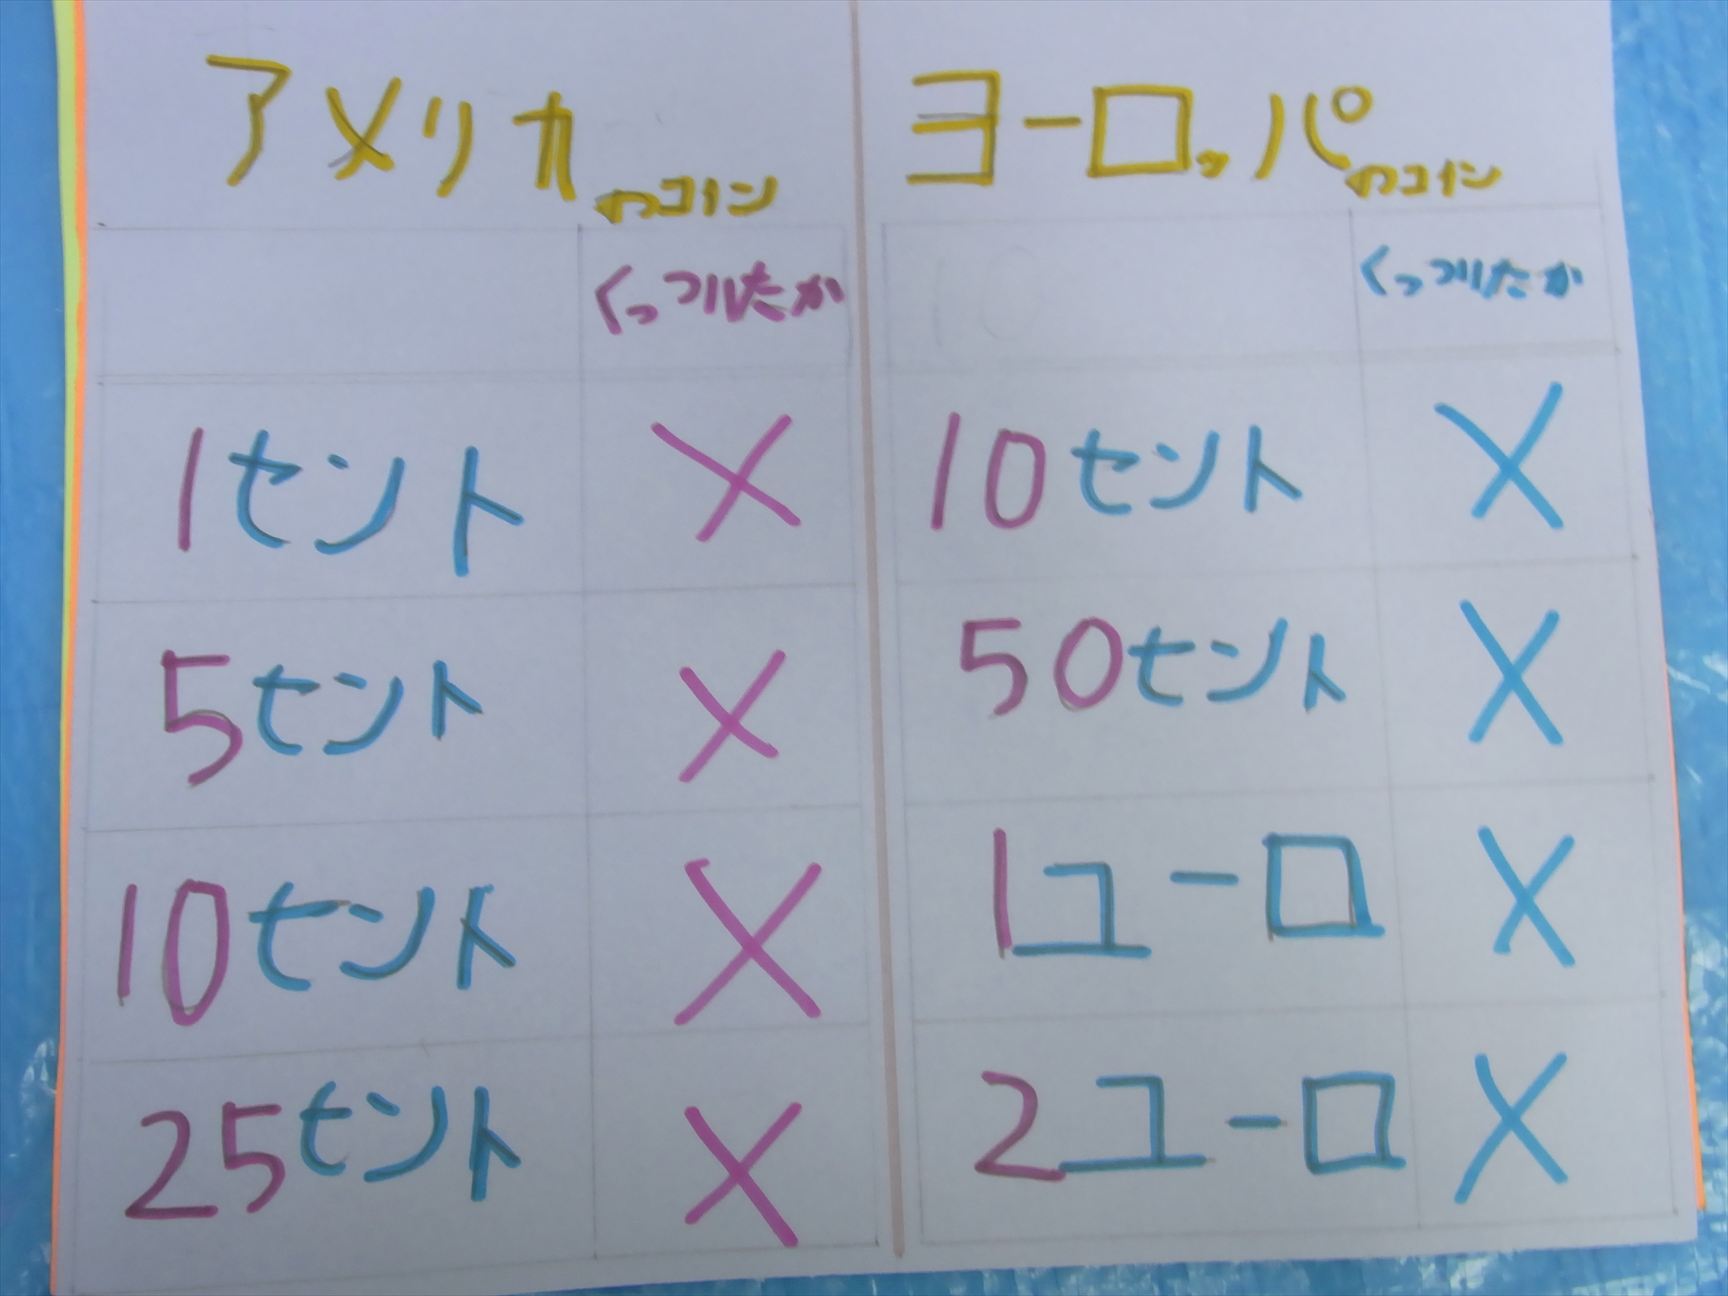 アメリカのコイン
くっついたか
1セント ×
5セント ×
10セント ×
25セント ×
ヨーロッパのコイン
くっついたか
10セント ×
50セント ×
1ユーロ ×
2ユーロ ×